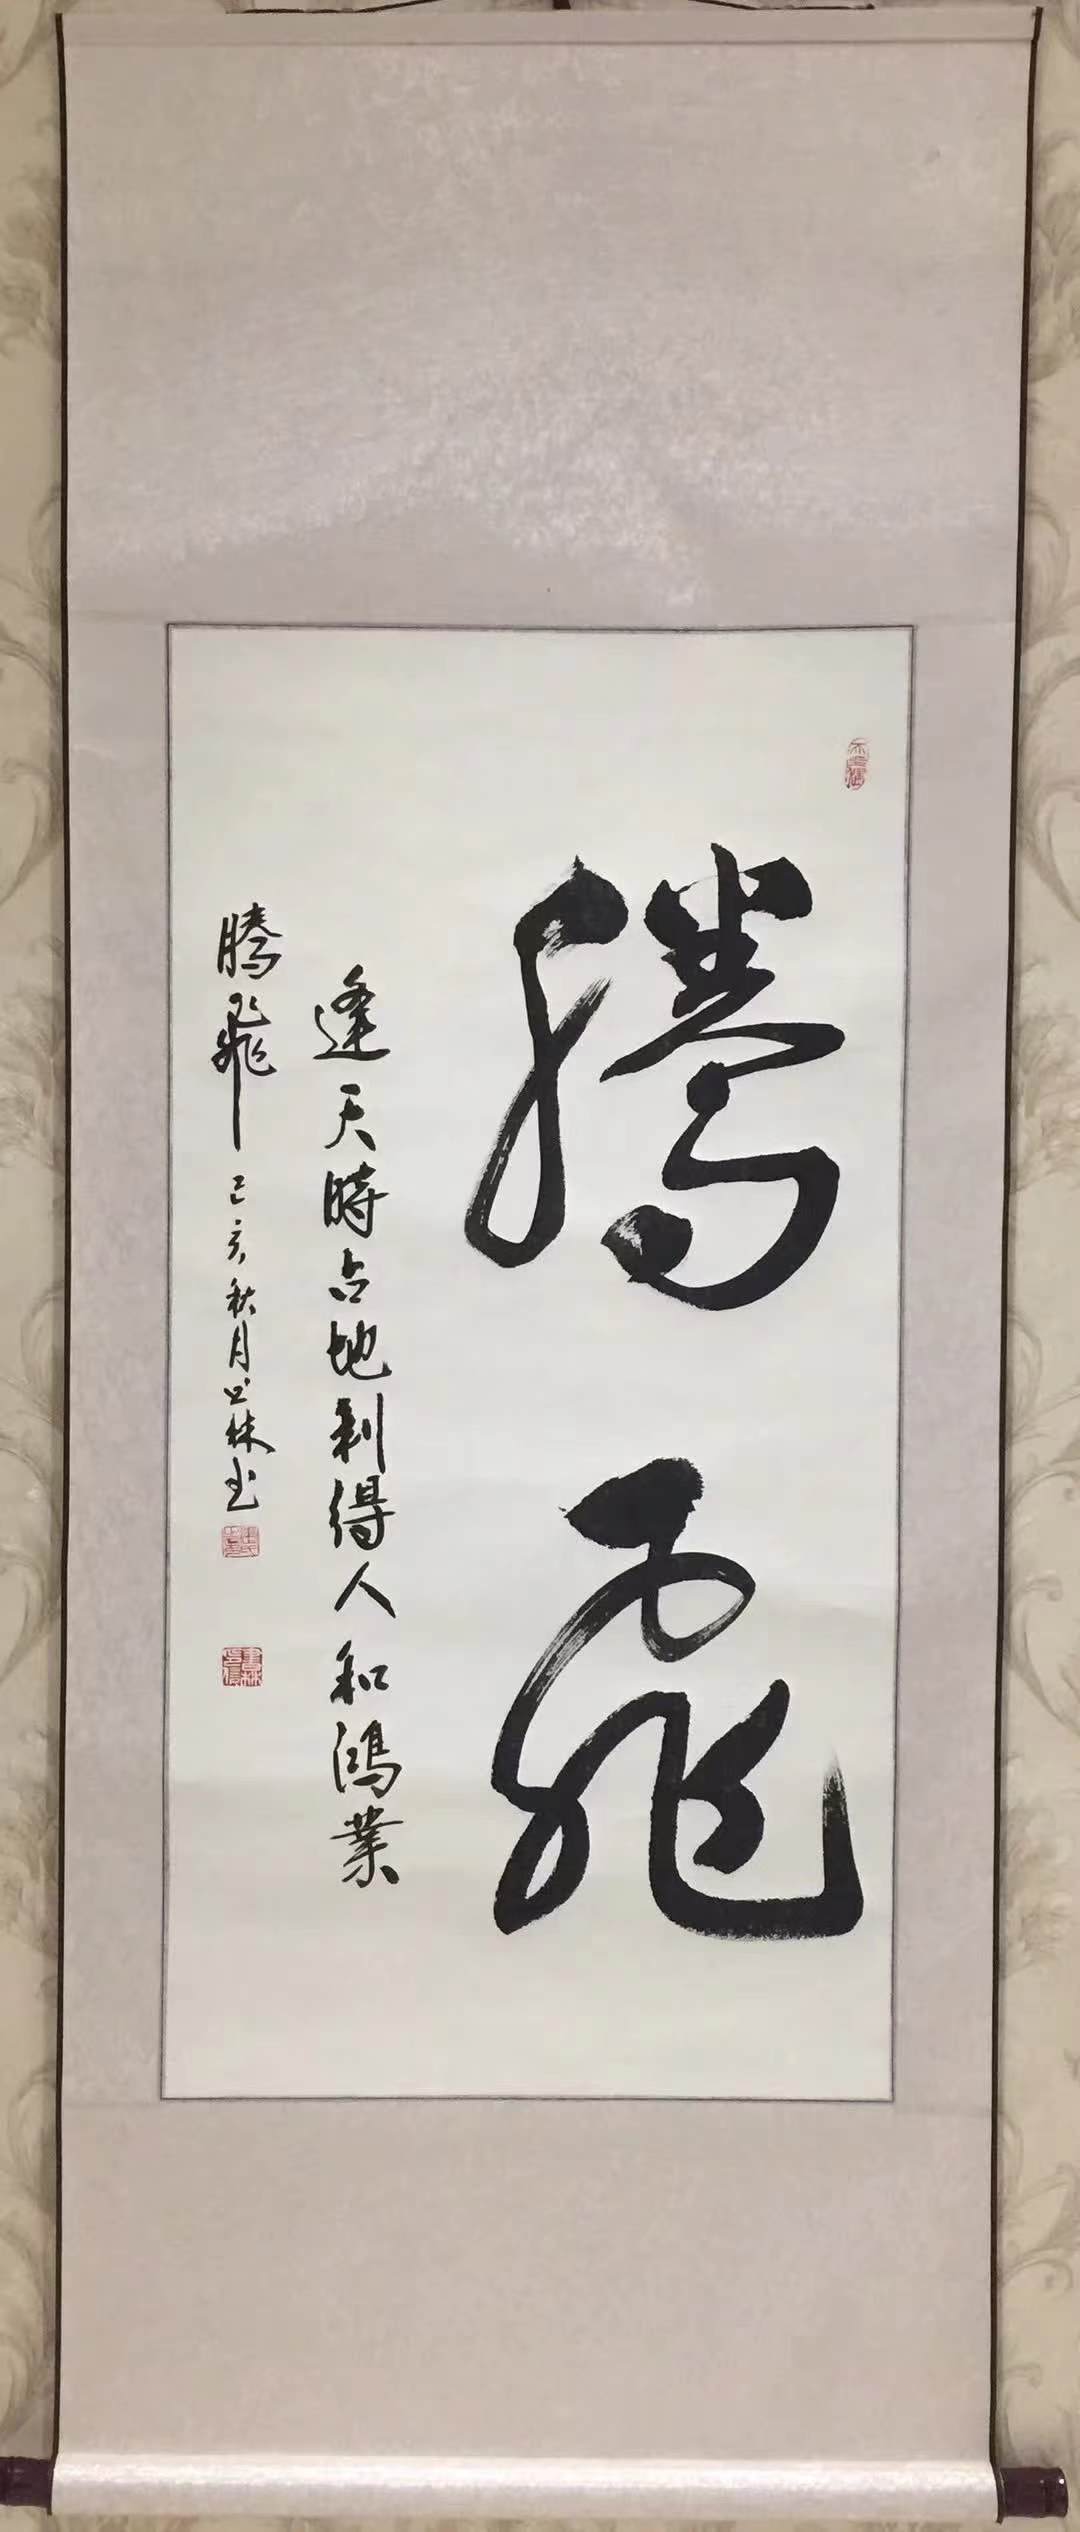 騰飛
逢天時占地利得人和鴻業
騰飛 己亥秋月书林书